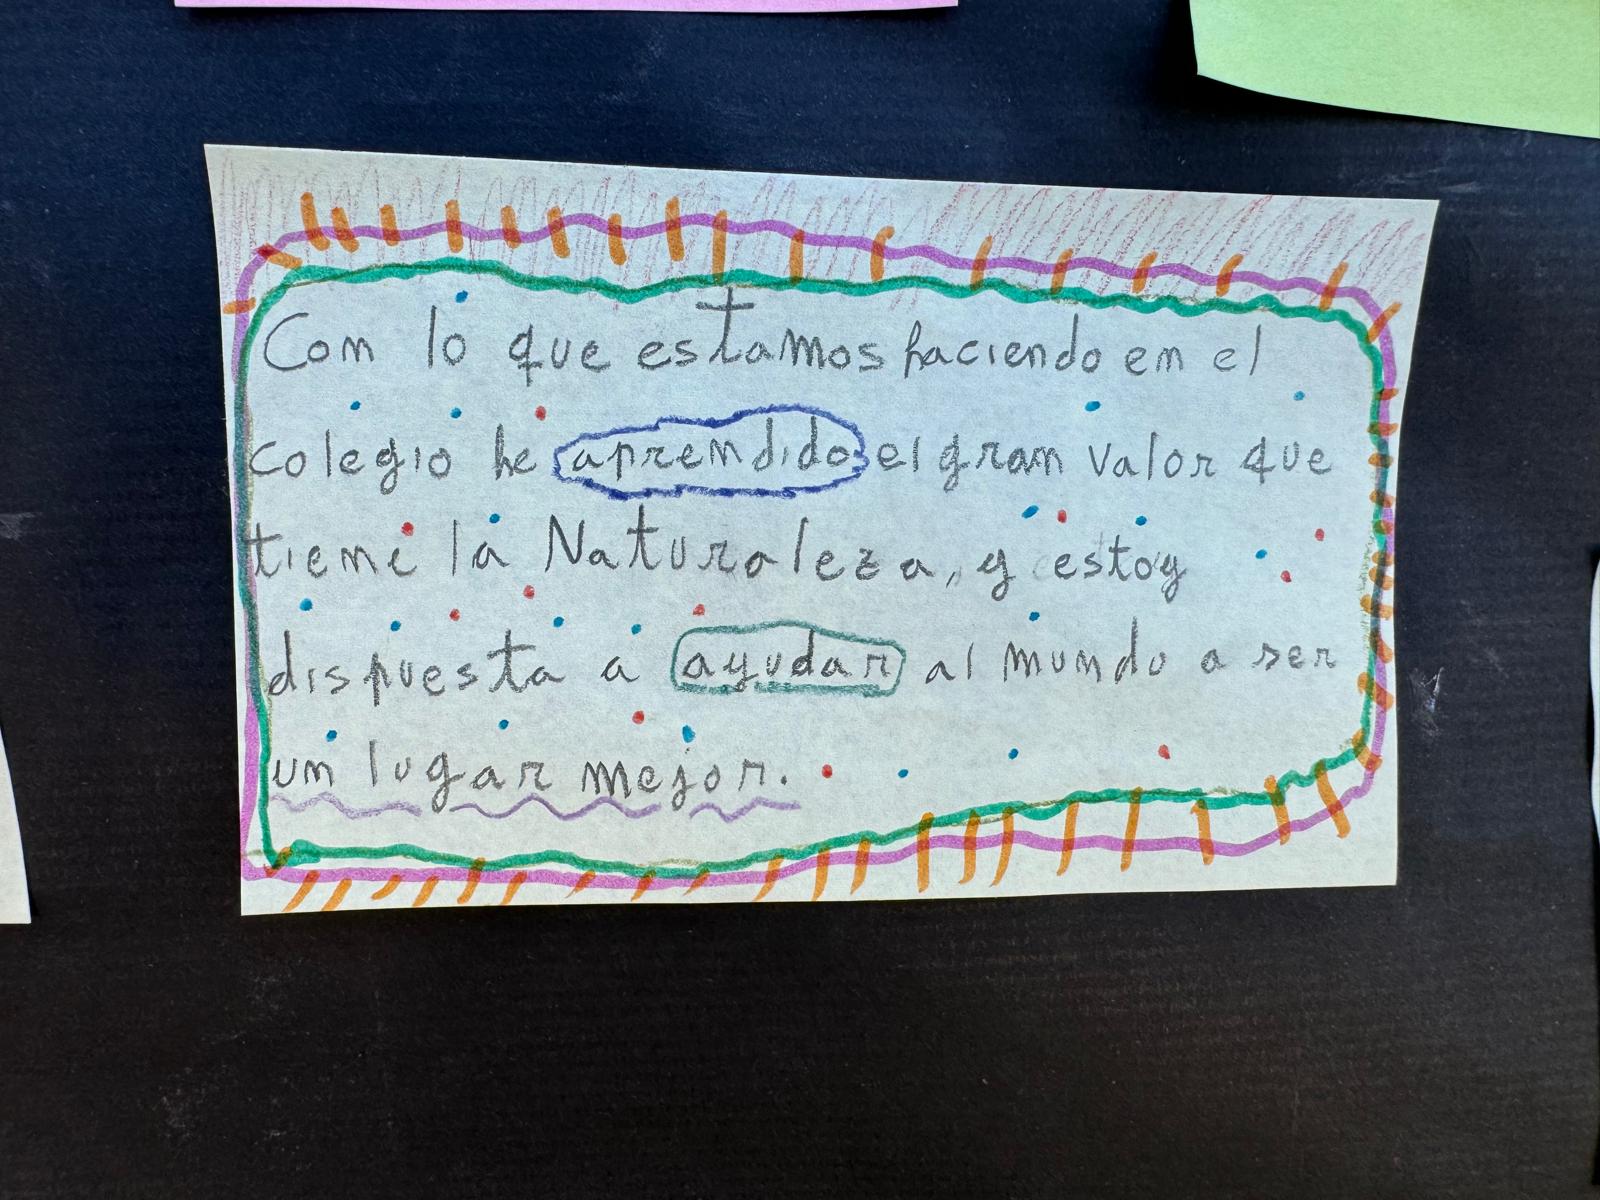 Con lo que estamos haciendo en el
colegio he aprendido el gran valor que
tiene la Naturaleza, y estoy
dispuesta a ayudar al mundo a ser
un lugar mejor.